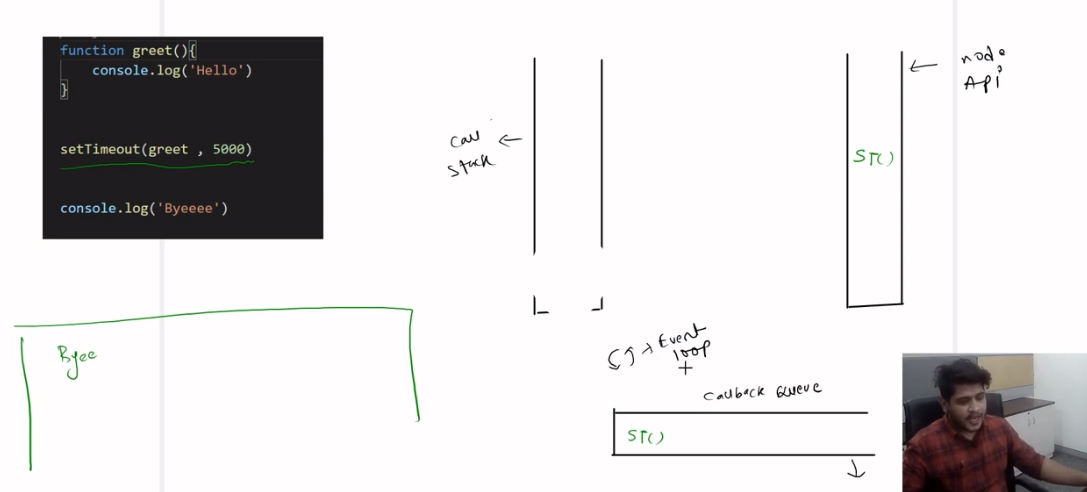 function greet(){
console.log('Hello')
}
setTimeout(greet , 5000)
console.log('Byeeee')
Call
stack
node
Api
ST()
Byee
Event
loop
+
Callback Queue
ST()